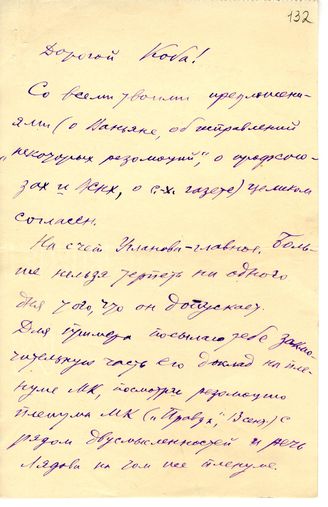 132
Дорогой Коба!
Со всеми твоими предложени-
ями (о Наньяне, об исправлений
"некоторых резолюций", о профсою-
зах и ВСНХ, о с.х. газете) целиком
согласен.
На счет Угланова – главное. Боль-
ше нельзя терпеть ни одного
дня того, что он допускает.
Для примера посылаю тебе заклю-
чительную часть его доклад на пле-
нуме МК, посмотри резолюцию
пленума МК ("Правда", 13 сент.) с
рядом двусмысленностей и речь
Лядова на том же пленуме.